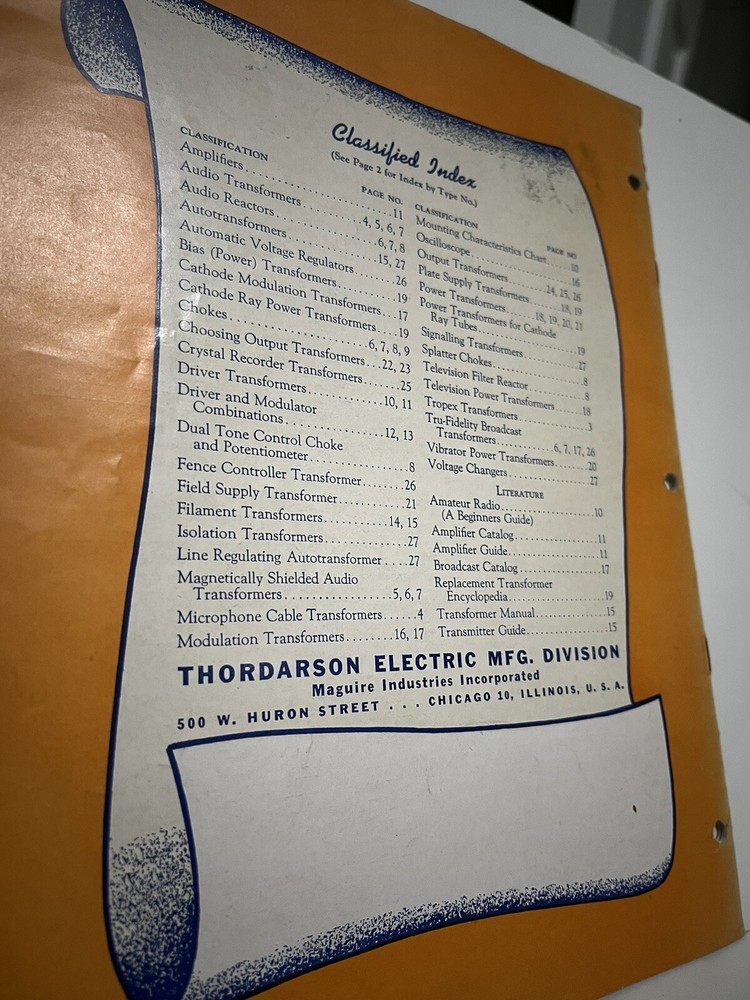 Classified Index
(See Page 2 for Index by Type No.)
CLASSIFICATION PAGE NO.
Amplifiers 11
Audio Transformers 4, 5, 6, 7
Audio Reactors 6, 7, 8
Autotransformers 15, 27
Automatic Voltage Regulators 26
Bias (Power) Transformers 19
Cathode Modulation Transformers 17
Cathode Ray Power Transformers 19
Chokes 6, 7, 8, 9
Choosing Output Transformers 22, 23
Crystal Recorder Transformers 25
Driver Transformers 10, 11
Driver and Modulator
Combinations 12, 13
Dual Tone Control Choke
and Potentiometer 8
Fence Controller Transformer 26
Field Supply Transformer 21
Filament Transformers 14, 15
Isolation Transformers 27
Line Regulating Autotransformer 27
Magnetically Shielded Audio
Transformers 5, 6, 7
Microphone Cable Transformers 4
Modulation Transformers 16, 17
CLASSIFICATION PAGE NO
Mounting Characteristics Chart 10
Oscilloscope 16
Output Transformers 24, 25, 26
Plate Supply Transformers 18, 19
Power Transformers 18, 19, 20, 21
Power Transformers for Cathode
Ray Tubes 19
Signalling Transformers 27
Splatter Chokes 8
Television Filter Reactor 8
Television Power Transformers 18
Tropex Transformers 3
Tru-Fidelity Broadcast
Transformers 6, 7, 17, 26
Vibrator Power Transformers 20
Voltage Changers 27
LITERATURE
Amateur Radio 10
(A Beginners Guide)
Amplifier Catalog 11
Amplifier Guide 11
Broadcast Catalog 17
Replacement Transformer
Encyclopedia 19
Transformer Manual 15
Transmitter Guide 15
THORDARSON ELECTRIC MFG. DIVISION
Maguire Industries Incorporated
500 W. HURON STREET . . . CHICAGO 10, ILLINOIS, U. S. A.